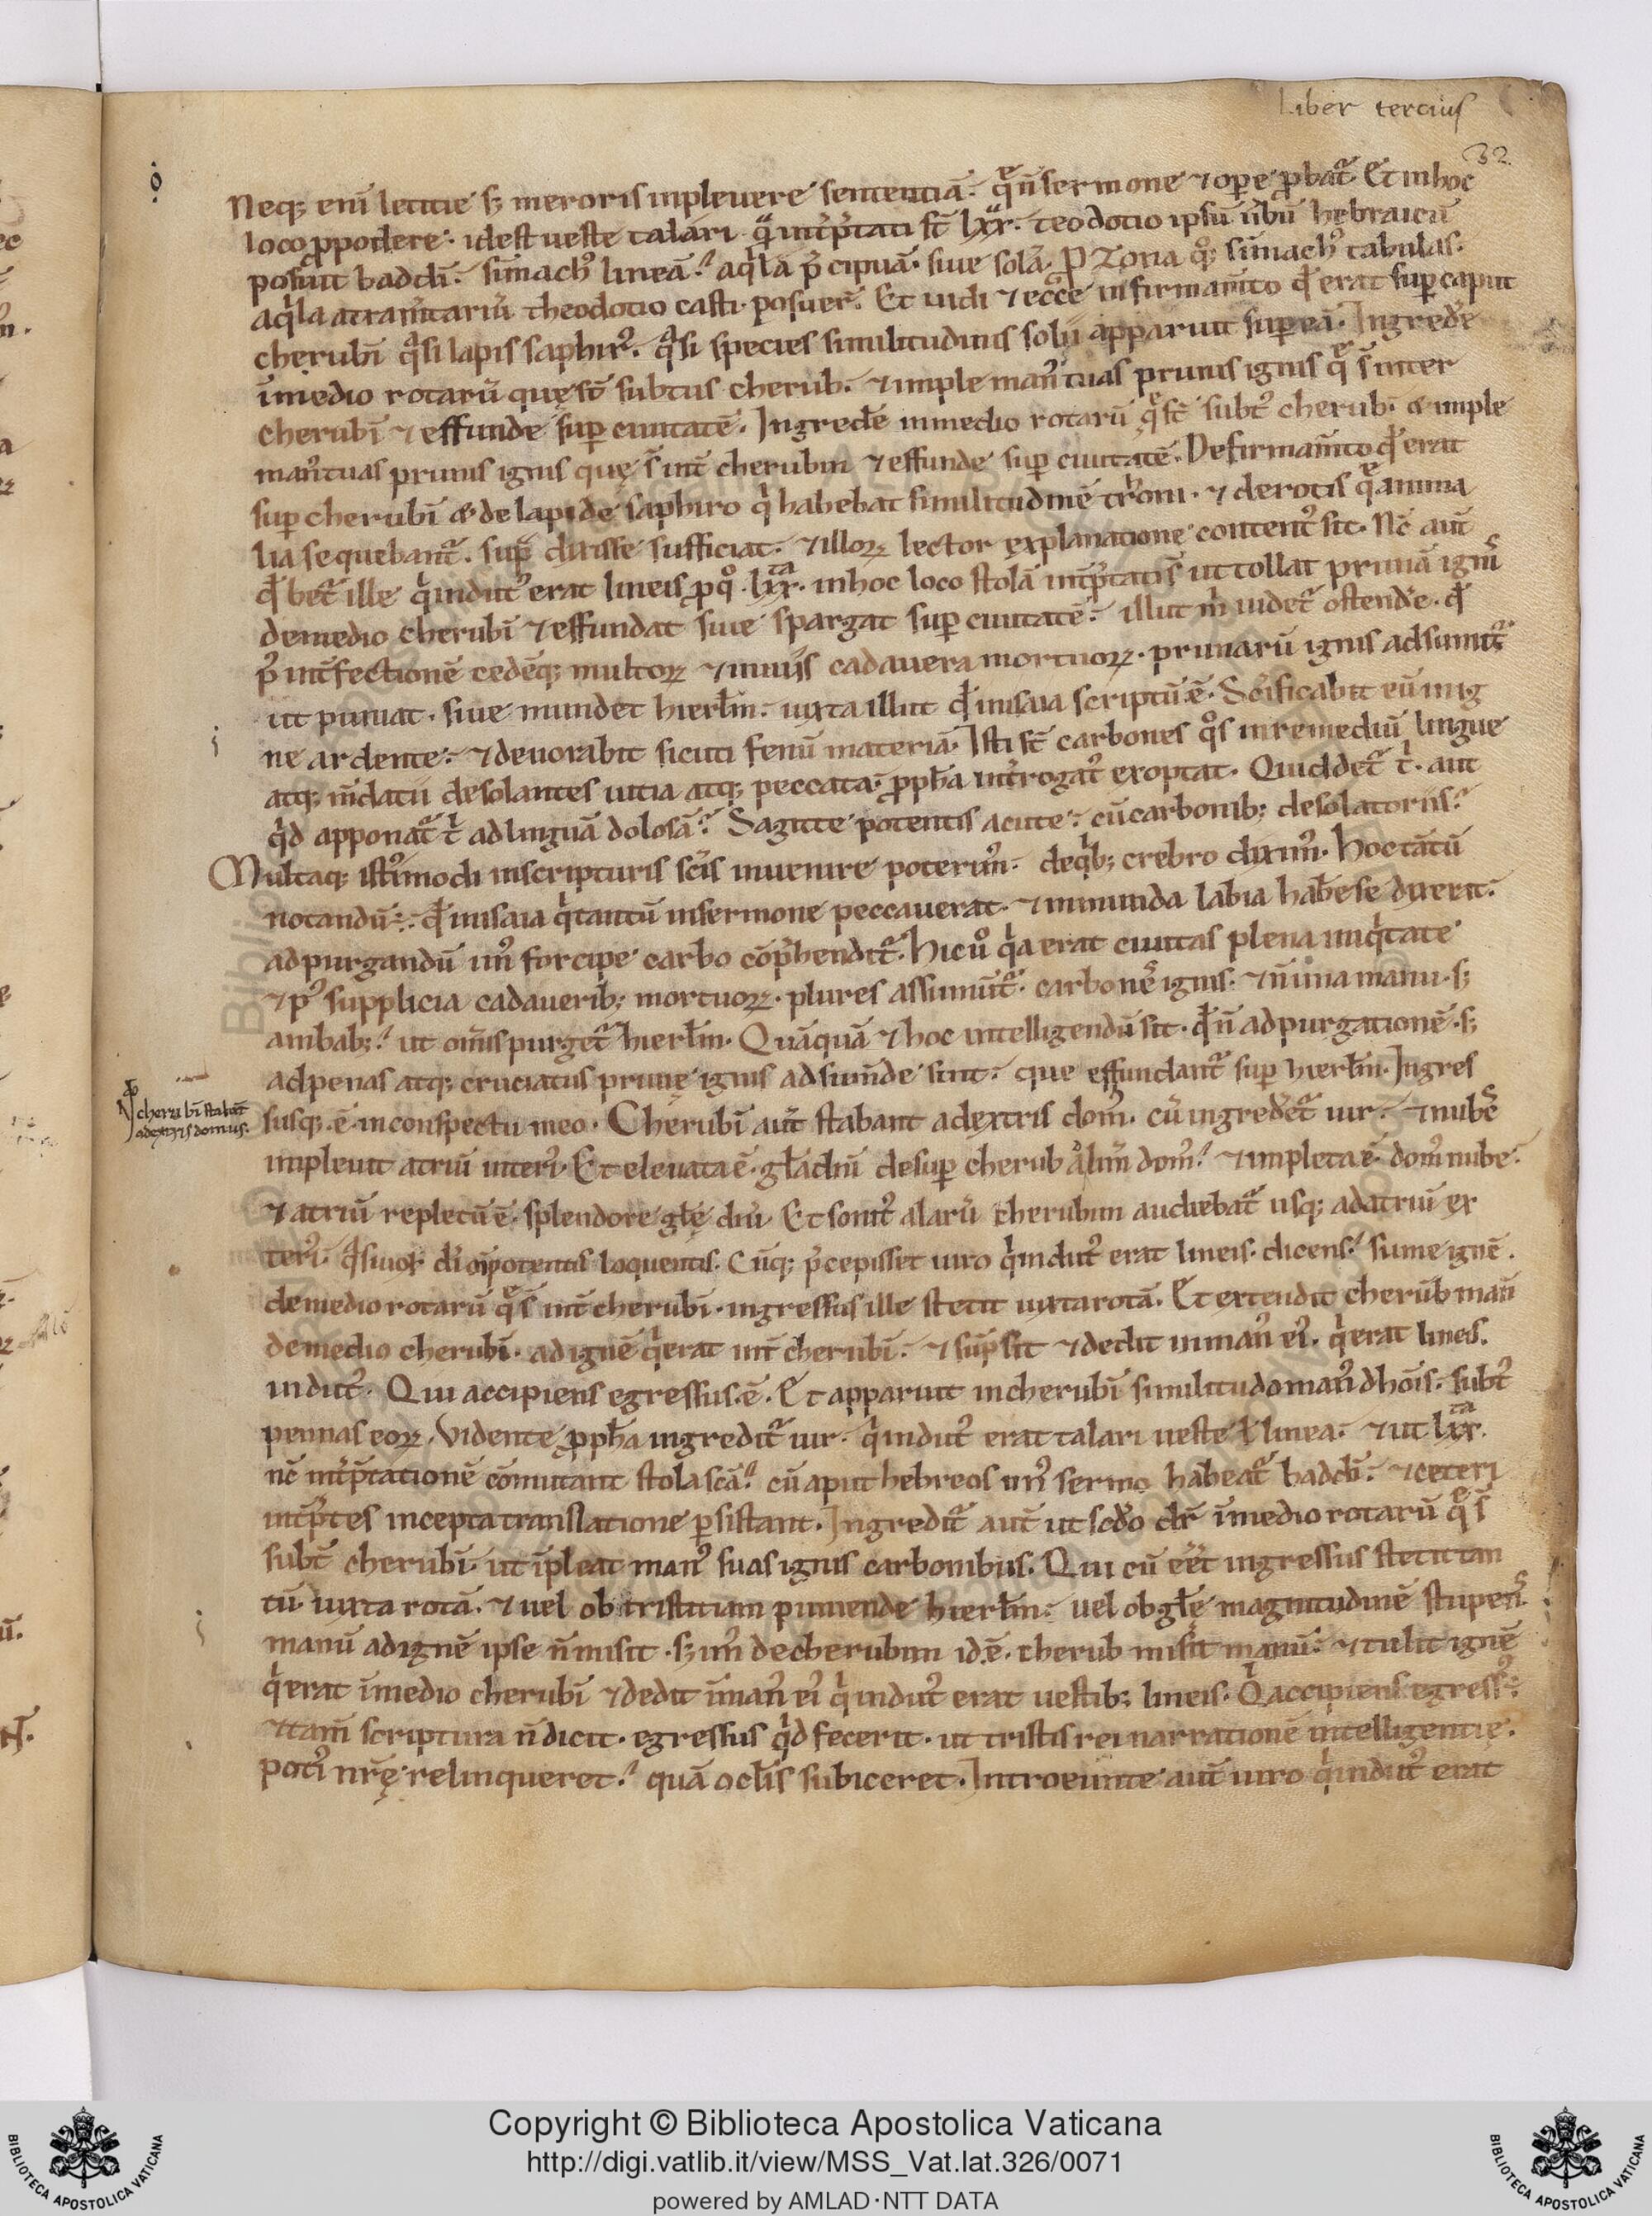 Liber tercius
32.
Neq; eni̅ letitie s; meroris inplevere sententia̅. que̅ n̅ sermone ⁊ ope ꝓbat᷑. Et in hoc
loco ꝓ podere. idest ueste talari q̅ int̅p̅tati st̅ lxx. teodotio ipsu̅ ŭbu̅ hebraicu̅
posuit baddi̅. sim̅ach᷒ linea̅. aq̍la p̅cipua̅. siue sola̅. ꝓ Zona q̊; sim̅ach᷒ tabulas.
aq̍la atram̅tariu̅ theodotio casti. posuer̅. Et uidi ⁊ ecce in firmam̅to qd̅ erat sup caput
cherubi̅ q̍si lapis saphir᷒. q̍si species similitudinis solii apparuit sup ea̅. Ingrede̅
i̅medio rotaru̅ quę st̅ subtus cherub. ⁊ imple man᷒ tuas prunis ignis q̅ s̅ inter
cherubi̅ ⁊ effunde sup ciuitate̅. Ingrede̅ in medio rotaru̅ q̅ st̅ subt᷒ cherubi̅ & imple
man᷒ tuas prunis ignis quę s̅ int̅ cherubin ⁊ effunde sup ciuitate̅. De firmam̅to qd̅ erat
sup cherubi̅ & de lapide saphiro q̍ habebat similitudine̅ troni. ⁊ de rotis q̅ anima
lia sequebant᷑. sup̅ dixisse sufficiat. ⁊ illoꝝ lector explanatione content᷒ sit. Nc̅ aut̅
qd̅ bet᷑ ille q̍ indut᷒ erat lineis ꝓ q̊ lxx. in hoc loco stola̅ int̅p̅tatis ut tollat pruna̅ ign̅
de medio cherubi̅ ⁊ effundat siue spargat sup ciuitate̅. illut m̍ uidet᷑ ostende̅. qd̅
p᷒ int̅fectione̅ cede̅q; multoꝝ ⁊ iniu̍s cadavera mortuoꝝ. prunaru̅ ignis adsumit᷑
ut puniat. siue mundet hierłm. iuxta illut qd̅ in isaia scriptu̅ e̅. Sc̅ificabit eu̅ in ig
ne ardente. ⁊ devorabit sicuti fenu̅ materia̅. Isti st̅ carbones q̊s in remediu̅ lingue
atq; m̅datu̅ desolantes uitia atq; peccata. ꝓpha int̅rogat᷒ exoptat. Quid det᷑ t̍. aut
q̍d apponat᷑ t̍ ad lingua̅ dolosa̅. Sagitte potentis acute. cu̅ carbonib; desolatoriis.
Multaq; isti᷒modi in scripturis sc̅is inuenire poterim᷒. de q̍b; crebro dixim᷒. Hoc ta̅tu̅
notandu̅. qd̅ in isaia q̍ tantu̅ in sermone peccauerat. ⁊ inmunda labia habe̅ se dixerit.
ad purgandu̅ un᷒ forcipe carbo co̅p̅hendit᷑. Hic ů q̍a erat ciuitas plena iniq̍tate
⁊ p᷒ supplicia cadaverib; mortuoꝝ. plures assumu̅t᷑. carbone̅s ignis. ⁊ n̅ una manu. s;
ambab; ut om̅is purget᷑ hierłm. Qua̅qua̅ ⁊ hoc intelligendu̅ sit. qd̅ n̅ ad purgatione̅. s;
ad penas atq; cruciatus prunę ignis adsum̅de sint. que effundant᷑ sup hierłm. Ingres
cherubi̅ staba̅t
adextris domus.
susq; e̅ in conspectu meo. Cherubi̅ aut̅ stabant adextris dom᷒. cu̅ ingredet᷑ uir. ⁊ nubes
impleuit atriu̅ interi᷒. Et elevata e̅. gła dn̅i desup cherub ad lim̅ dom᷒. ⁊ impleta e̅. dom᷒ nube.
⁊ atriu̅ repletu̅ e̅. splendore głę dn̅i. Et sonit᷒ alaru̅ cherubim audiebat᷑ usq; ad atriu̅ ex
teri᷒. q̍si uox di̅ oi̅potentis loquentis. Cu̅q; p̅cepisset uiro q̍ indut᷒ erat lineis. dicens. sume igne̅.
de medio rotaru̅ q̅ s̅ int̅ cherubi̅. ingressus ille stetit iuxta rota̅. Et extendit cherub manu̅
de medio cherubi̅. ad igne̅ q̍ erat int̅ cherubi̅. ⁊ su̅psit ⁊ dedit in man᷒ ei᷒. q̍ erat lineis.
indut᷒. Qui accipiens egressus. e̅. Et apparuit in cherubi̅ similitudo man᷒ d hois̅. subt᷒
pennas eoꝝ. Vidente ꝓpha ingredit᷑ uir. q̍ indut᷒ erat talari ueste ł linea. ⁊ ut lxx.
nc̅ int̅p̅tatione̅ co̅mutant stola sca̅. cu̅ aput hebreos un᷒ sermo habeat᷑ baddi̅. ⁊ ceteri
int̅p̅tes incepta translatione p̲sistant. Ingredit᷑ aut̅ ut scd̅o dr̅ i̅medio rotaru̅ q̅ s̅
subt̅ cherubi̅. ut i̅pleat man᷒ suas ignis carbonibus. Qui cu̅ ee̅t ingressus stetit tan
tu̅ iuxta rota̅. ⁊ uel ob tristitiam puniende hierłm. uel ob głę magnitudine̅ stupens.
manu̅ ad igne̅ ipse n̅ misit. s; un᷒ de cherubim id. e̅. cherub misit manu̅. ⁊ tulit igne̅
q̍ erat i̅medio cherubi̅ ⁊ dedit i̅man᷒ ei᷒ q̍ indut᷒ erat uestib; lineis. Q̍ accipiens egress᷒.
⁊ tam̅ scriptura n̅ dicit. egressus q̍d fecerit. ut tristis rei narratione̅ intelligentię.
poti᷒ nr̅ę relinqueret. qua̅ oclis̅ subiceret. Introeunte aut̅ uiro q̍ indut᷒ erat
Copyright © Biblioteca Apostolica Vaticana
http://digi.vatlib.it/view/MSS_Vat.lat.326/0071
powered by AMLAD·NTT DATA
BIBLIOTECA APOSTOLICA VATICANA
BIBLIOTECA APOSTOLICA VATICANA